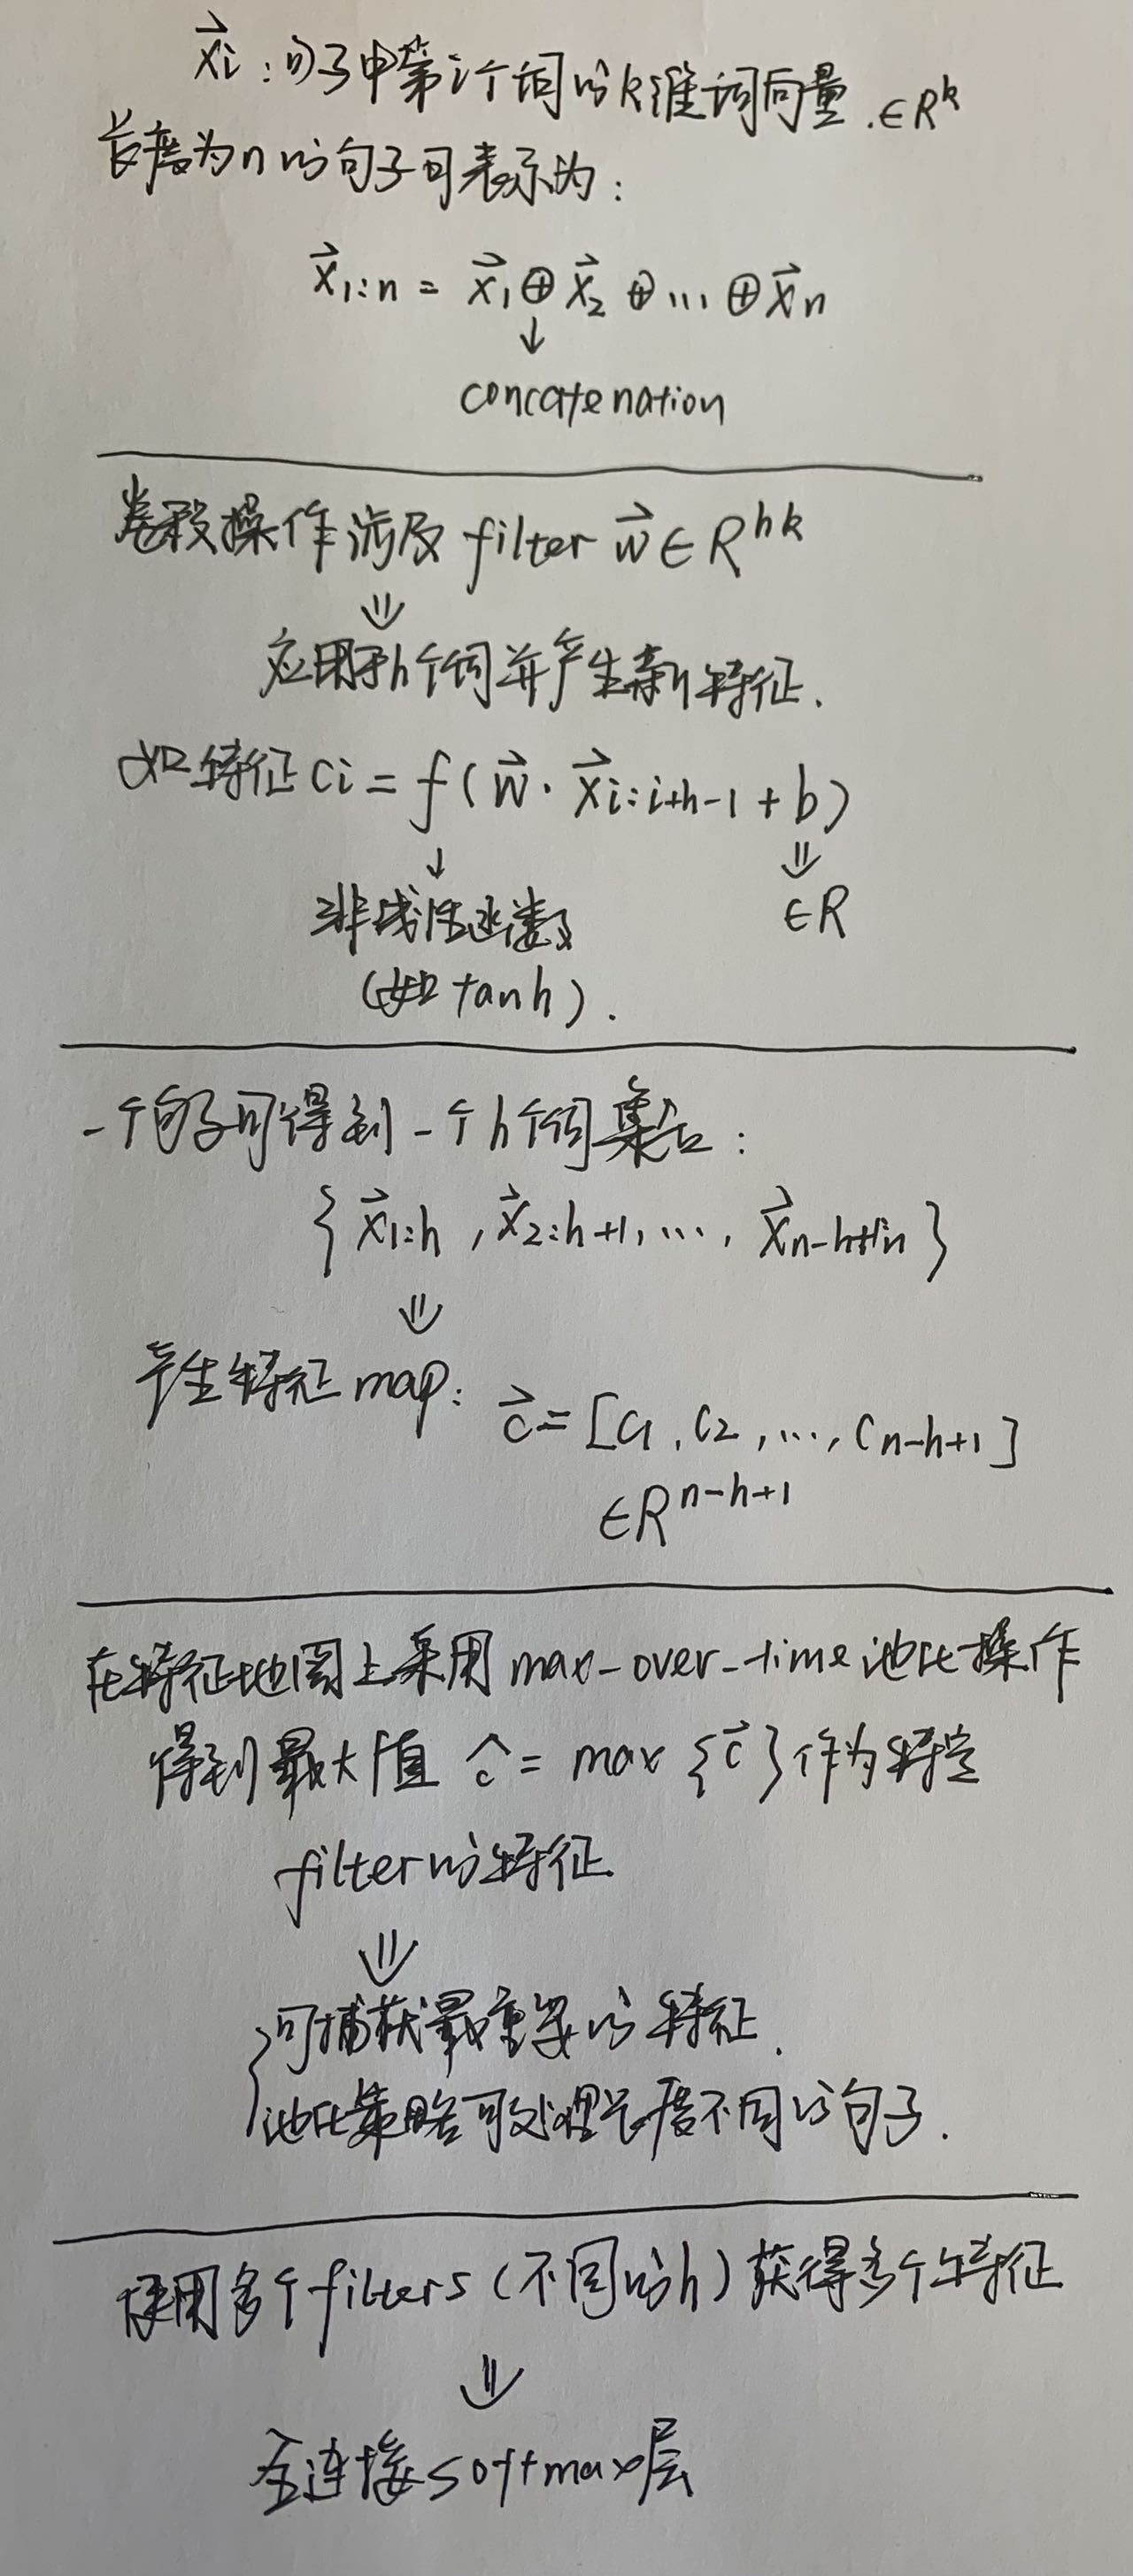 x⃗i：句子中第i个词的k维词向量.∈R^k
长度为n的句子可表示为：
x⃗1:n = x⃗1⊕x⃗2⊕…⊕x⃗n
↓
concatenation
卷积操作涉及filter w⃗∈R^hk
⇓
应用于h个词并产生新特征.
如特征ci = f(w⃗·x⃗i:i+h-1+b)
↓ ⇓
非线性函数 ∈R
(如tanh).
一个句子可得到一个h个词集合：
{x⃗1:h, x⃗2:h+1, …, x⃗n-h+1:n}
⇓
产生特征map：c⃗=[c1, c2, …, cn-h+1]
∈R^n-h+1
在特征地图上采用max-over-time池化操作
得到最大值 ĉ= max{c⃗}作为特定
filter的特征
⇓
{可捕获最重要的特征.
池化策略可处理长度不同的句子.
使用多个filters(不同的h)获得多个特征
⇓
全连接softmax层